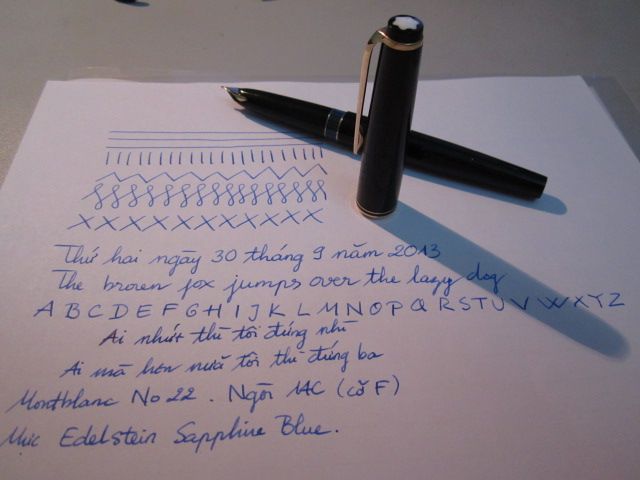 Thứ hai ngày 30 tháng 9 năm 2013
The brown fox jumps over the lazy dog
A B C D E F G H I J K L M N O P Q R S T U V W X Y Z
Ai nhứt thì tôi đứng nhì
Ai mà hơn nữa tôi thì đứng ba
Montblanc No 22. Ngòi 14C (cỡ F)
Mực Edelstein Sapphire Blue.